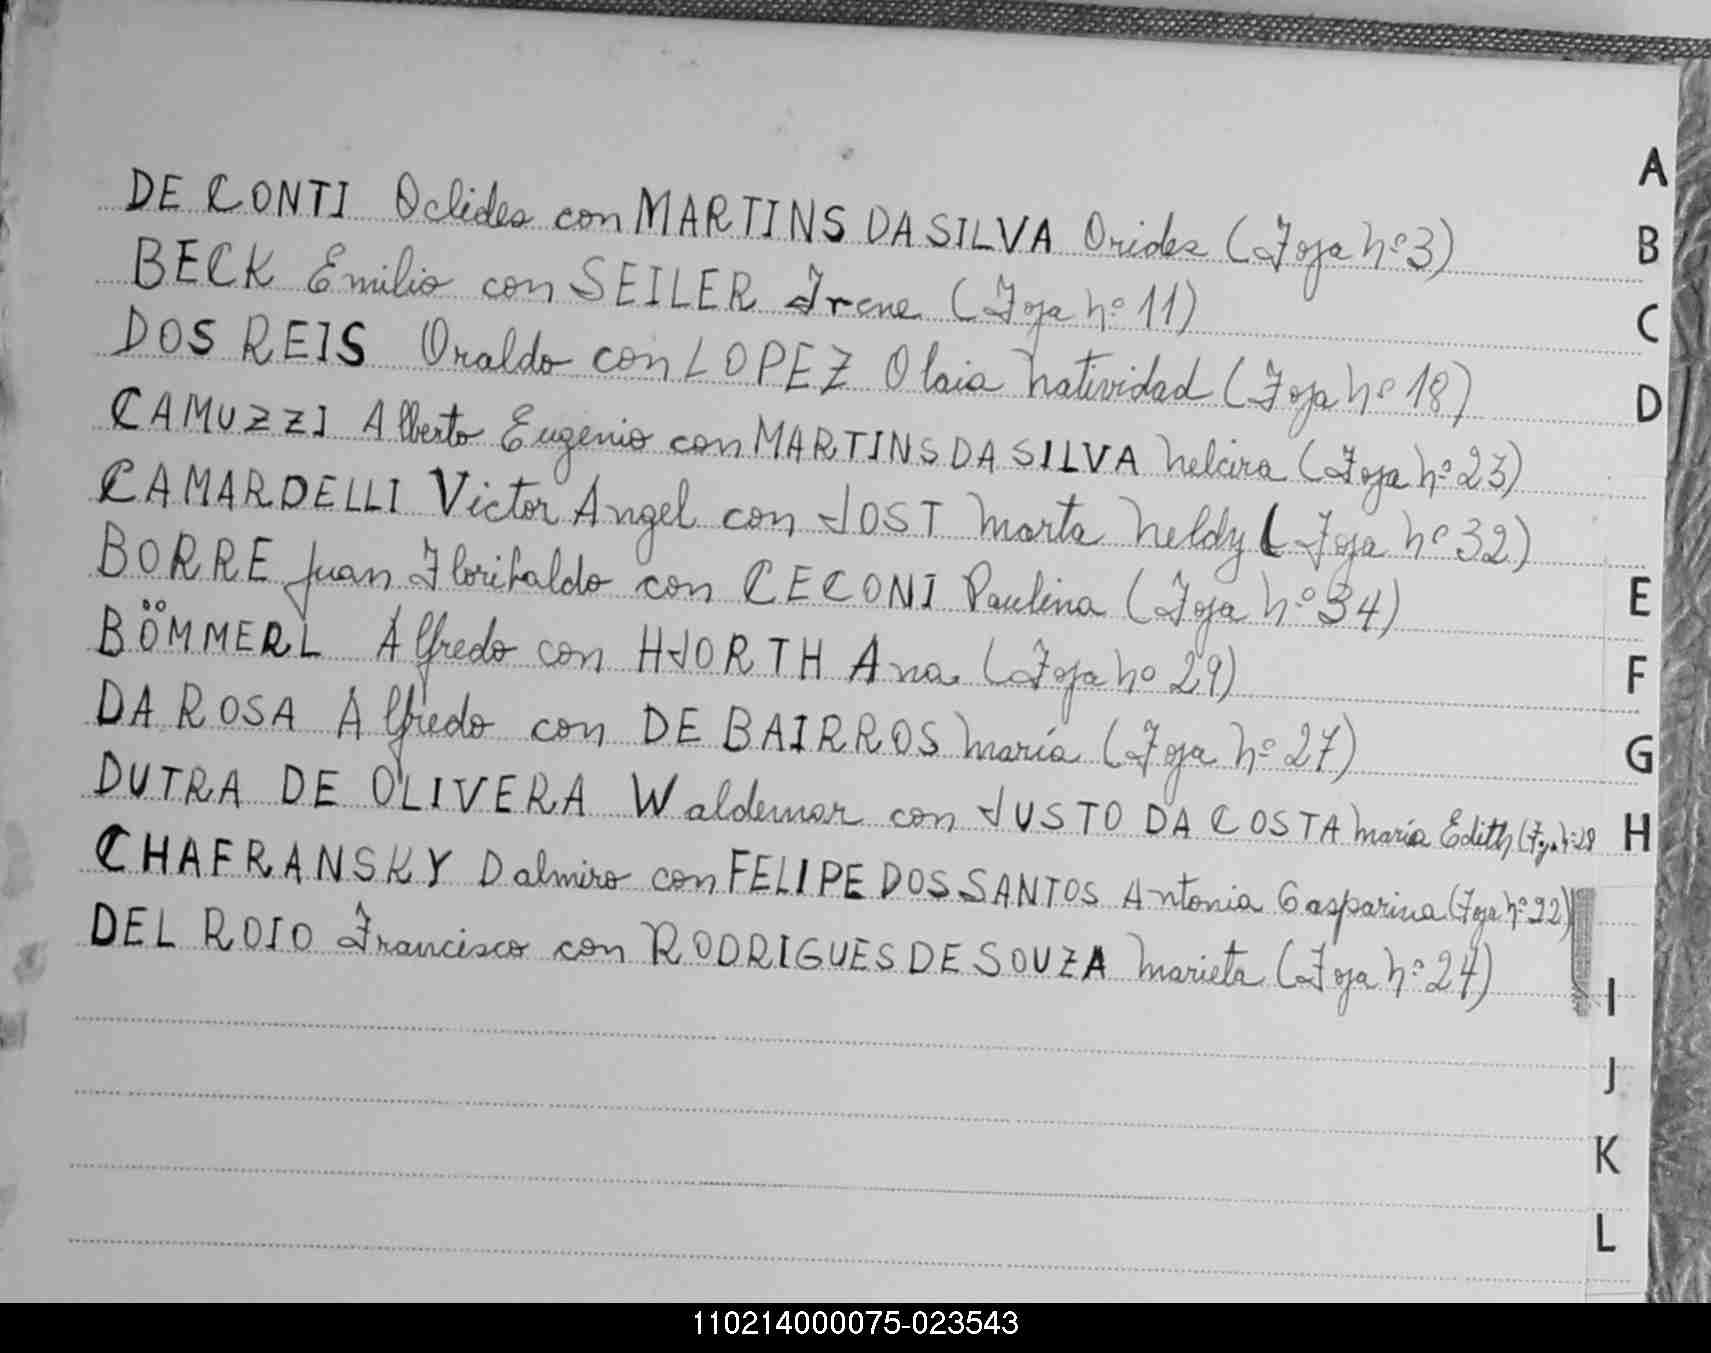 A
DE CONTI Oclides con MARTINS DA SILVA Orides (Foja Nº 3)
B
BECK Emilio con SEILER Irene (Foja Nº 11)
C
DOS REIS Oraldo con LOPEZ Olaia Natividad (Foja Nº 18)
D
CAMUZZI Alberto Eugenio con MARTINS DA SILVA Nelcira (Foja Nº 23)
CAMARDELLI Victor Angel con JOST Marta Neldy (Foja Nº 32)
BORRE Juan Floribaldo con CECONI Paulina (Foja Nº 34)
E
BÖMMERL Alfredo con HJORTH Ana (Foja Nº 29)
F
DA ROSA Alfredo con DE BAIRROS María (Foja Nº 27)
G
DUTRA DE OLIVERA Waldemar con JUSTO DA COSTA María Edith (Foja Nº 28
H
CHAFRANSKY Dalmiro con FELIPE DOS SANTOS Antonia Gasparina (Foja Nº 22)
DEL ROIO Francisco con RODRIGUES DE SOUZA Marieta (Foja Nº 24)
I
J
K
L
110214000075-023543